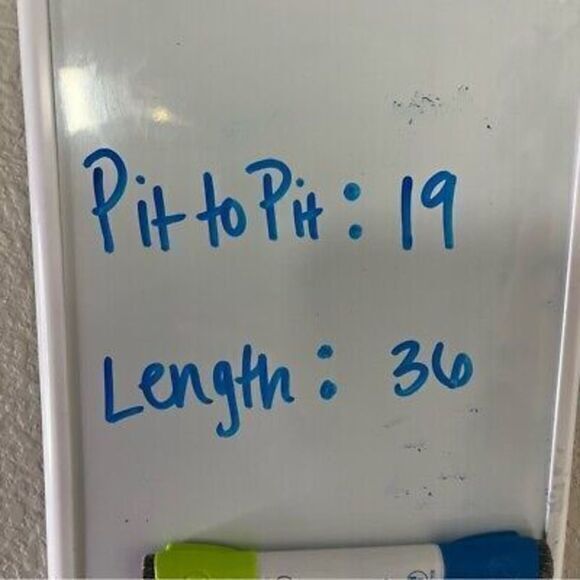 Pit to Pit: 19
Length: 36